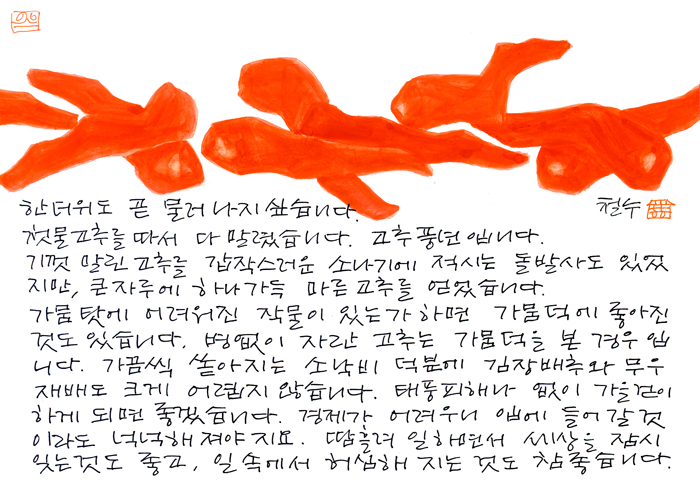 한더위도 곧 물러나지 싶습니다.
철수
첫물고추를 따서 다 말렸습니다. 고추풍년입니다.
기껏 말린고추를 갑작스러운 소나기에 적시는 돌발사도 있었
지만, 큰자루에 하나가득 마른고추를 얻었습니다.
가뭄탓에 어려워진 작물이 있는가 하면 가뭄덕에 좋아진
것도 있습니다. 병없이 자란 고추는 가뭄덕을 본 경우입
니다. 가끔씩 쏟아지는 소낙비 덕분에 김장배추와 무우
재배도 크게 어렵지 않습니다. 태풍피해나 없이 가을걷이
하게 되면 좋겠습니다. 경제가 어려우니 입에 들어갈것
이라도 넉넉해져야지요. 땀흘려 일하면서 세상을 잠시
잊는것도 좋고, 일속에서 허심해 지는 것도 참좋습니다.